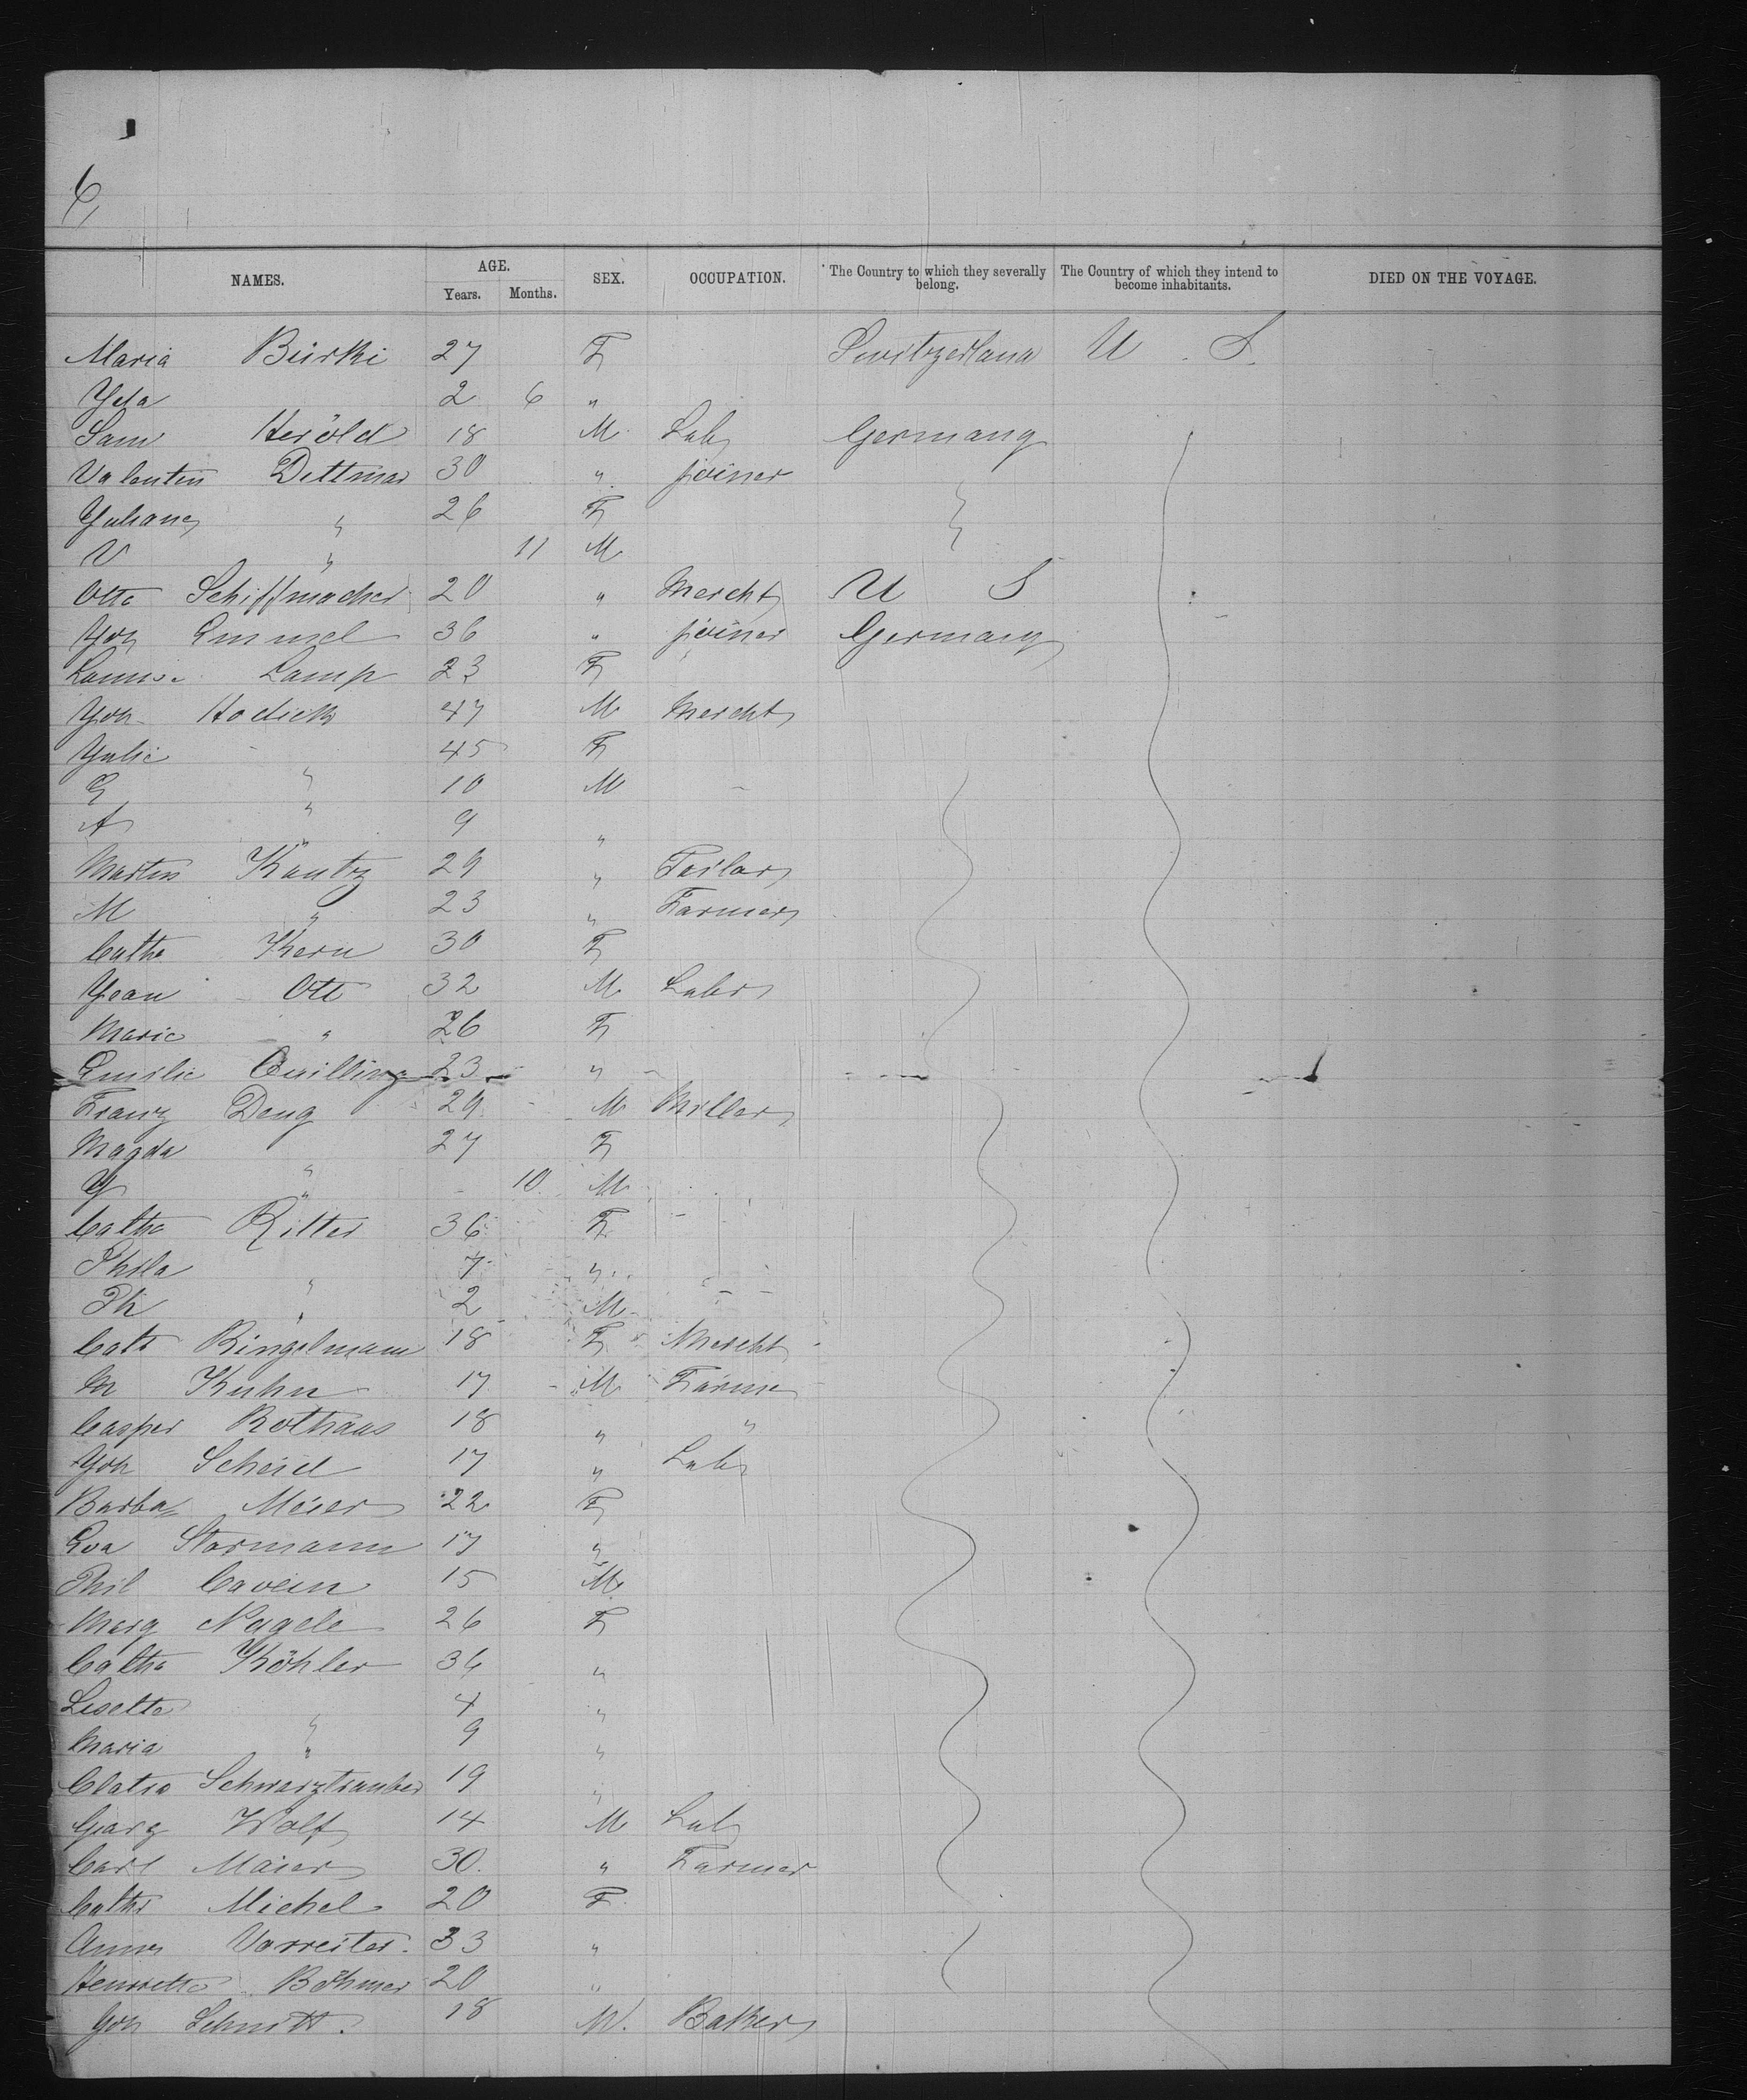 6
NAMES. AGE. SEX. OCCUPATION. The Country to which they severally belong. The Country of which they intend to become inhabitants. DIED ON THE VOYAGE.
Years. Months.
Maria Bürki 27 F Switzerland U S.
Yda 2 6 "
Sam Herold 18 M Lab Germany
Valentin Dettmar 30 " joiner
Juliane " 26 F
V " 11 M
Otto Schiffmacher 20 " Mercht U S
Joh Emmel 36 " joiner Germany
Louise Lamp 23 F
Joh Hodick 47 M Mercht
Julie 45 F
G " 10 M
A " 9 "
Martin Kautz 29 " Teilor
M " 23 " Farmer
Catha Kern 30 F
Jean Ott 32 M Labr
Marie " 26 F
Emilie Quilling 23 "
Franz Deng 29 M Miller
Magda 27 F
J " 10 M
Catha Ritter 36 F
Phila " 7 "
Ph " 2 M
Cath Ringelmann 18 F Mercht
M Kuhn 17 M Farme
Casper Rothaas 18 " "
Joh Scheid 17 " Lab
Barba Meier 22 F
Eva Starmann 17 "
Phil Cavein 15 M
Marg Nagele 26 F
Catha Köhler 36 "
Lisette " 4 "
Maria " 9 "
Schwarztrauber 19 "
Georg Wolf 14 M Lab
Carl Maier 30 " Farmer
Catha Michel 20 F
Anna Vorreiter 33 "
Henriette Böhmer 20 "
Joh Schmitt. 18 M. Baker